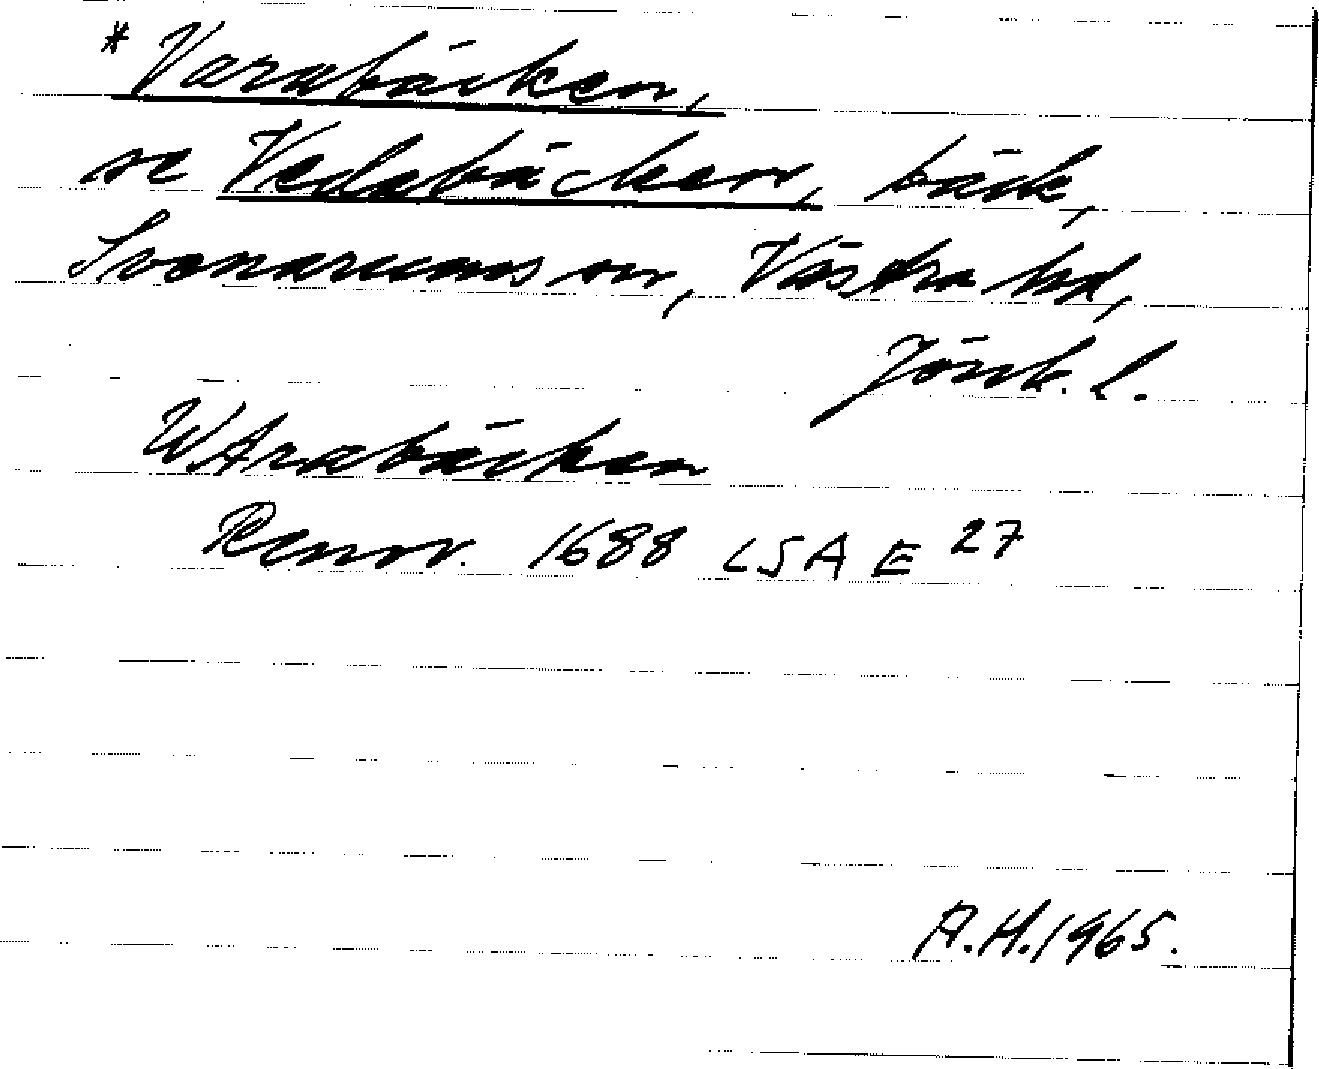 * Varabäcken,
se Vedabäcken, bäck,
Svenarums sn, Västra hd,
Jönk. l.
WArabäcken
Renov. 1688 LSA E 27
A.H. 1965.